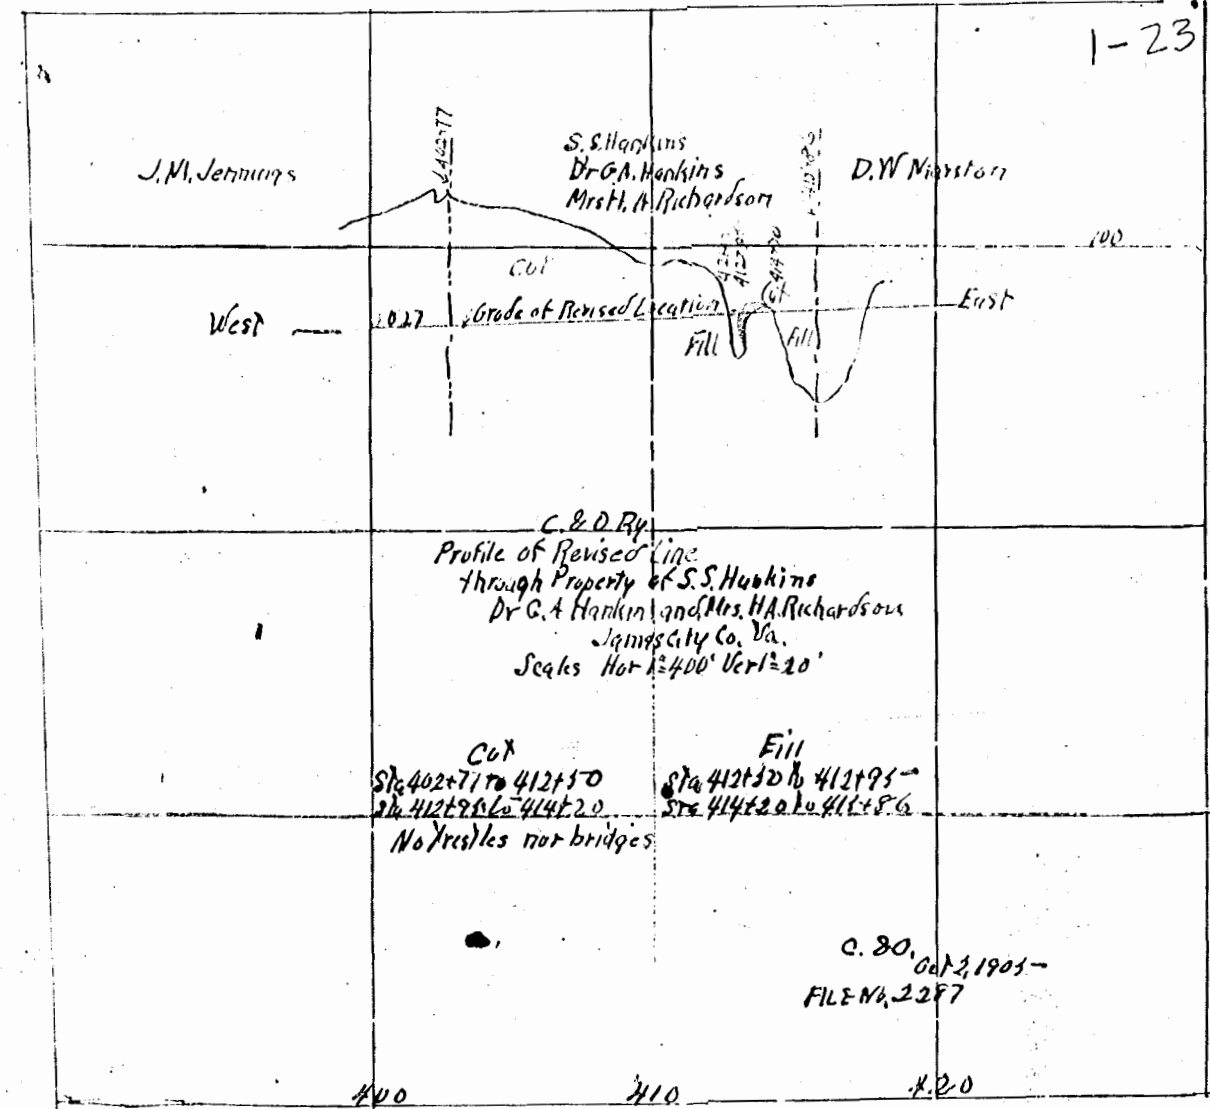 1-23
J.M. Jennings
S.S. Hankins
Dr G.A. Hankins
Mrs H.A. Richardson
D.W Marston
402+77
414+20
100
Cut
Cut
West
Grade of Revised Location
East
Fill
Fill
C. & O Ry.
Profile of Revised Line
through Property of S.S. Hankins
Dr G.A Hankins and Mrs. H.A. Richardson
James City Co. Va.
Scales Hor 1"=400' Ver 1"=20'
Cut
Fill
Sta 402+77 to 412+50
Sta 412+50 to 412+95
Sta 412+95 to 414+20
Sta 414+20 to 415+86
No trestles nor bridges
C. & O.
Oct 2, 1905
FILE No. 2287
400
410
420